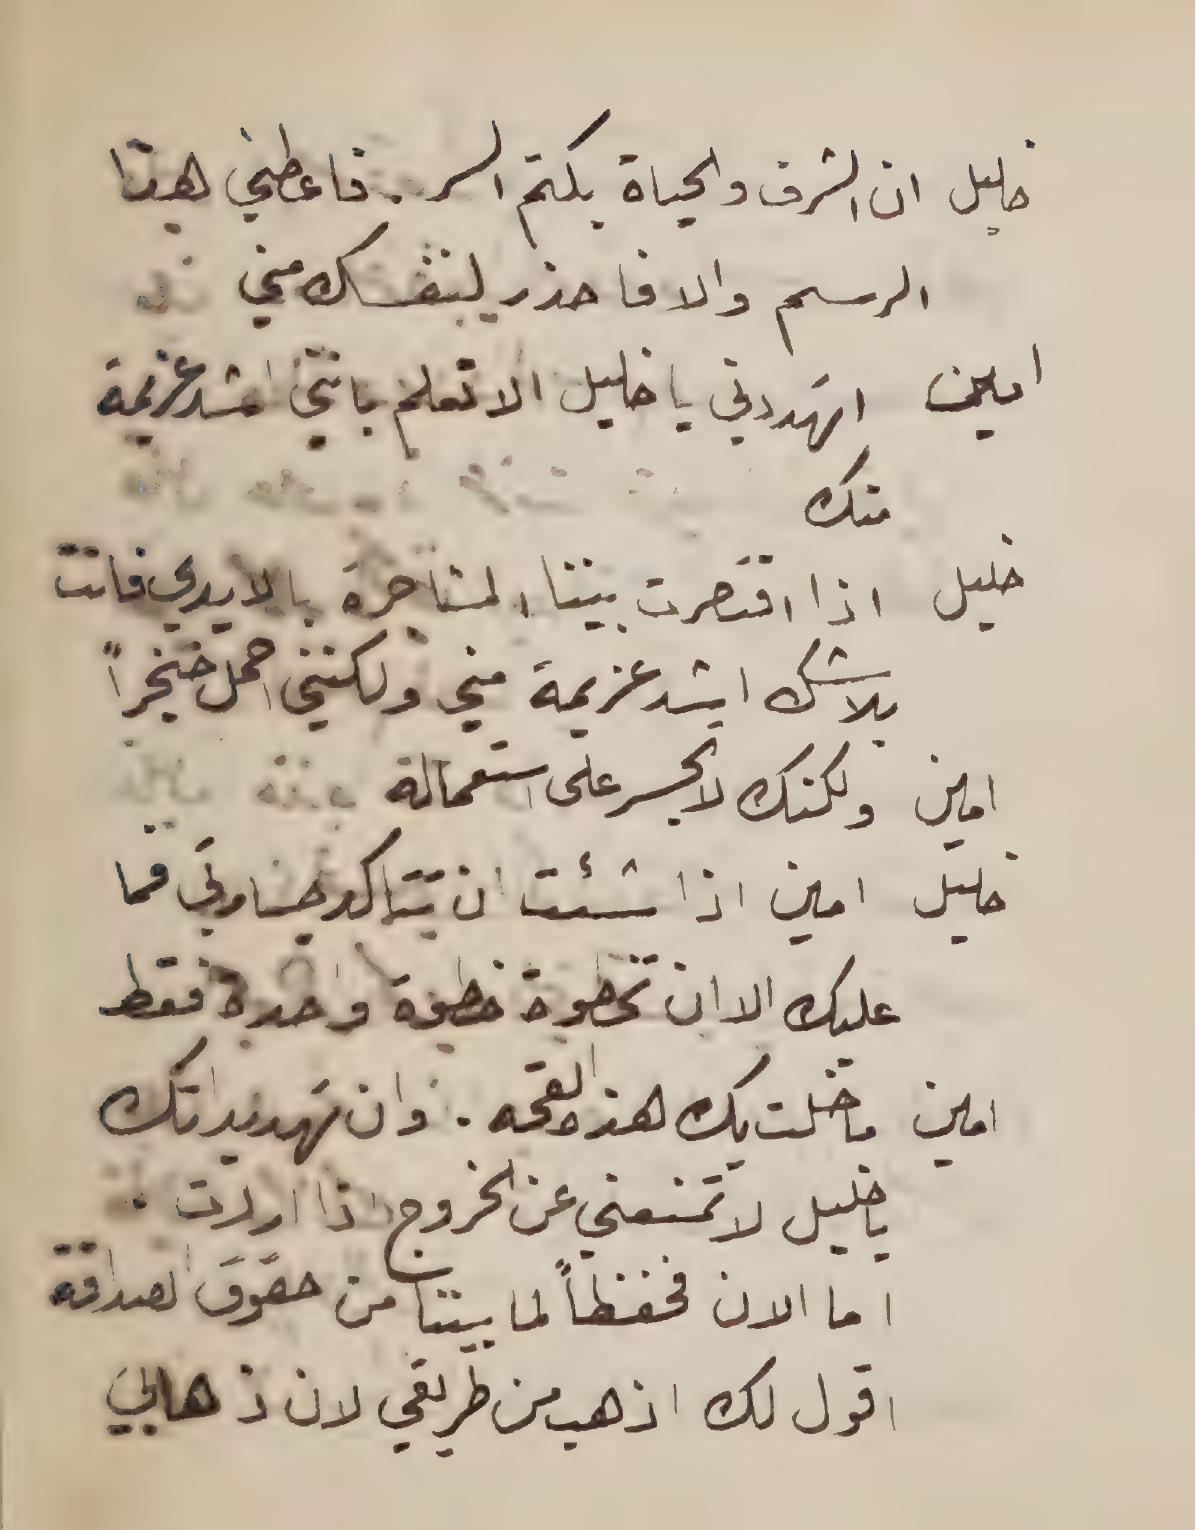 خليل ان الشرف والحياة بكتم السر. فاعطني هذا
الرسم والا فاحذر لنفسك مني
امين اتهددني يا خليل الا تعلم بانني اشد عزيمة
منك
خليل اذا اقتصرت بيننا المشاجرة بالايدي فانت
بلا شك اشد عزيمة مني ولكنني احمل خنجراً
امين ولكنك لا تجسر على استعماله
خليل امين اذا شئت ان تتاكد جسارتي فما
عليك الا ان تخطوة خطوة واحدة فقط
امين ما خلت بك هذه القحه. وان تهديداتك
يا خليل لا تمنعني عن الخروج اذا اردت.
اما الان فحفظاً لما بيننا من حقوق الصداقة
اقول لك اذهب من طريقي لان ذهابي